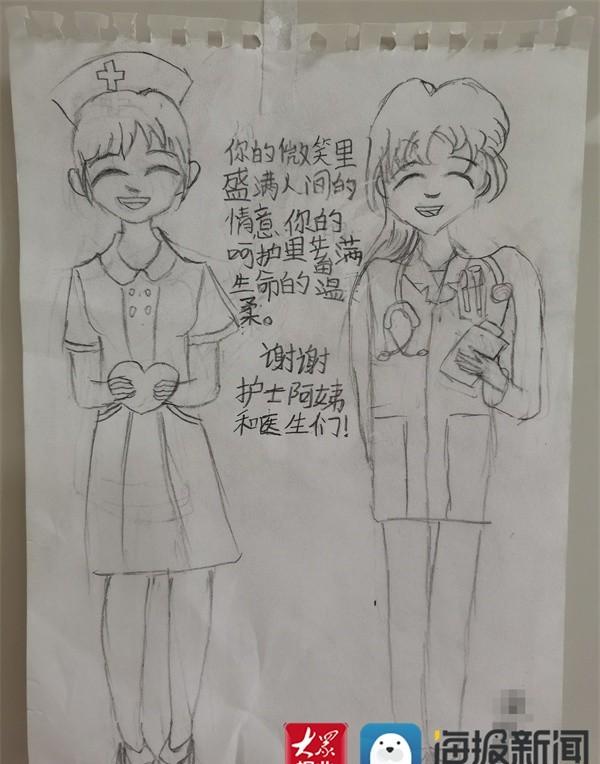 你的微笑里
盛满人间的
情意,你的
呵护里蓄满
生命的温
柔。
谢谢
护士阿姨
和医生们!
大众
海报新闻